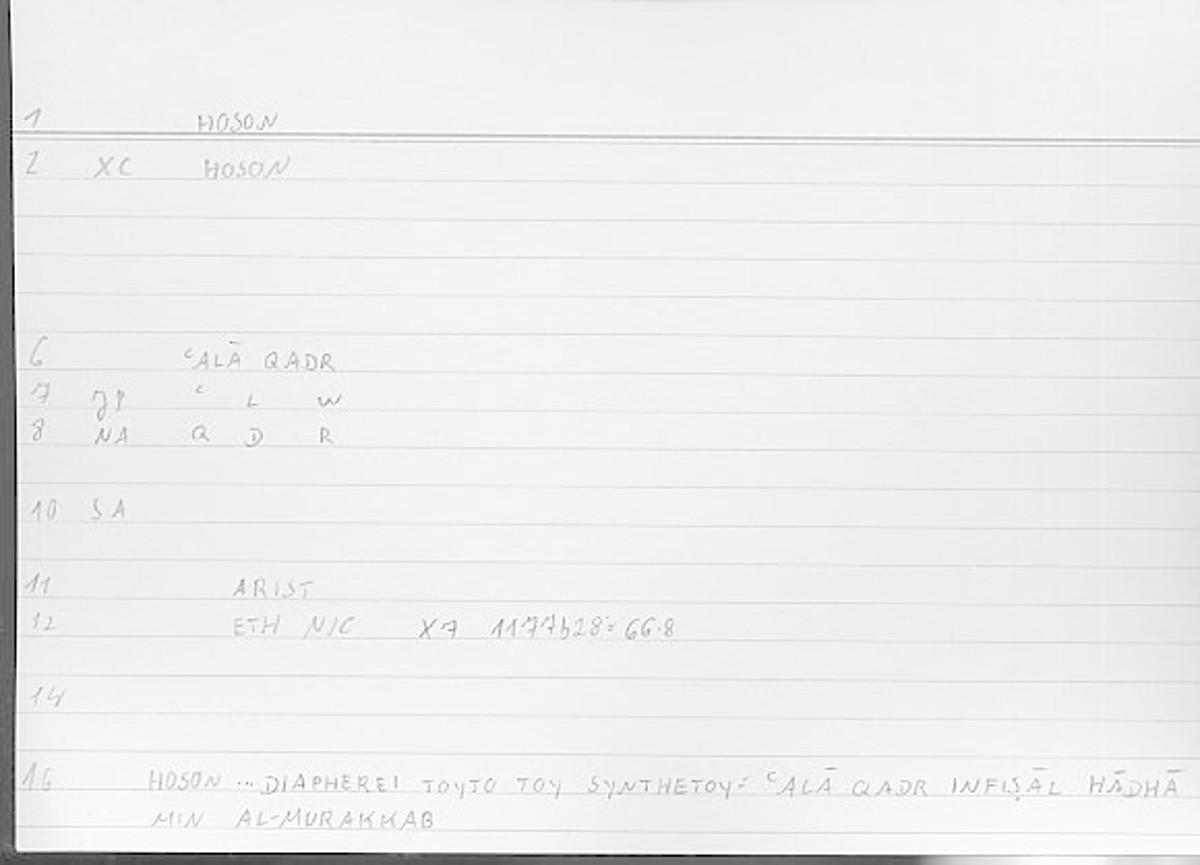 1 HOSON
2 XC HOSON
6 ʿALĀ QADR
7 JP ʿ L W
8 NA Q D R
10 SA
11 ARIST
12 ETH NIC X7 1177b28=66.8
14
16 HOSON ... DIAPHEREI TOYTO TOY SYNTHETOY= ʿALĀ QADR INFIṢĀL HĀDHĀ
MIN AL-MURAKKAB